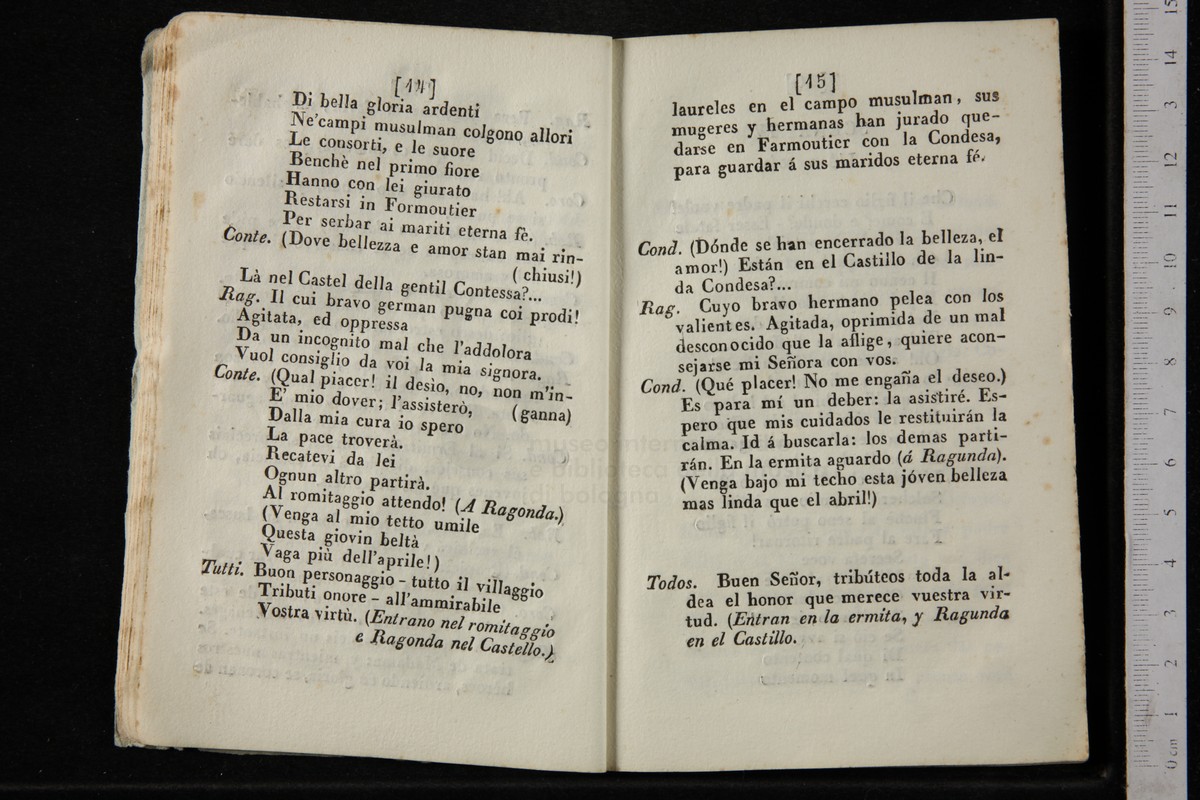 [14]
Di bella gloria ardenti
Ne'campi musulman colgono allori
Le consorti, e le suore
Benchè nel primo fiore
Hanno con lei giurato
Restarsi in Formoutier
Per serbar ai mariti eterna fè.
Conte. (Dove bellezza e amor stan mai rin-
(chiusi!)
Là nel Castel della gentil Contessa?...
Rag. Il cui bravo german pugna coi prodi!
Agitata, ed oppressa
Da un incognito mal che l'addolora
Vuol consiglio da voi la mia signora.
Conte. (Qual piacer! il desio, no, non m'in-
E' mio dover; l'assisterò, (ganna)
Dalla mia cura io spero
La pace troverà.
Recatevi da lei
Ognun altro partirà.
Al romitaggio attendo! (A Ragonda.)
(Venga al mio tetto umile
Questa giovin beltà
Vaga più dell'aprile!)
Tutti. Buon personaggio - tutto il villaggio
Tributi onore - all'ammirabile
Vostra virtù. (Entrano nel romitaggio
e Ragonda nel Castello.)
[15]
laureles en el campo musulman, sus
mugeres y hermanas han jurado que-
darse en Farmoutier con la Condesa,
para guardar á sus maridos eterna fé.
Cond. (Dónde se han encerrado la belleza, el
amor!) Están en el Castillo de la lin-
da Condesa?...
Rag. Cuyo bravo hermano pelea con los
valientes. Agitada, oprimida de un mal
desconocido que la aflige, quiere acon-
sejarse mi Señora con vos.
Cond. (Qué placer! No me engaña el deseo.)
Es para mí un deber: la asistiré. Es-
pero que mis cuidados le restituirán la
calma. Id á buscarla: los demas parti-
rán. En la ermita aguardo (á Ragunda).
(Venga bajo mi techo esta jóven belleza
mas linda que el abril!)
Todos. Buen Señor, tribúteos toda la al-
dea el honor que merece vuestra vir-
tud. (Entran en la ermita, y Ragunda
en el Castillo.